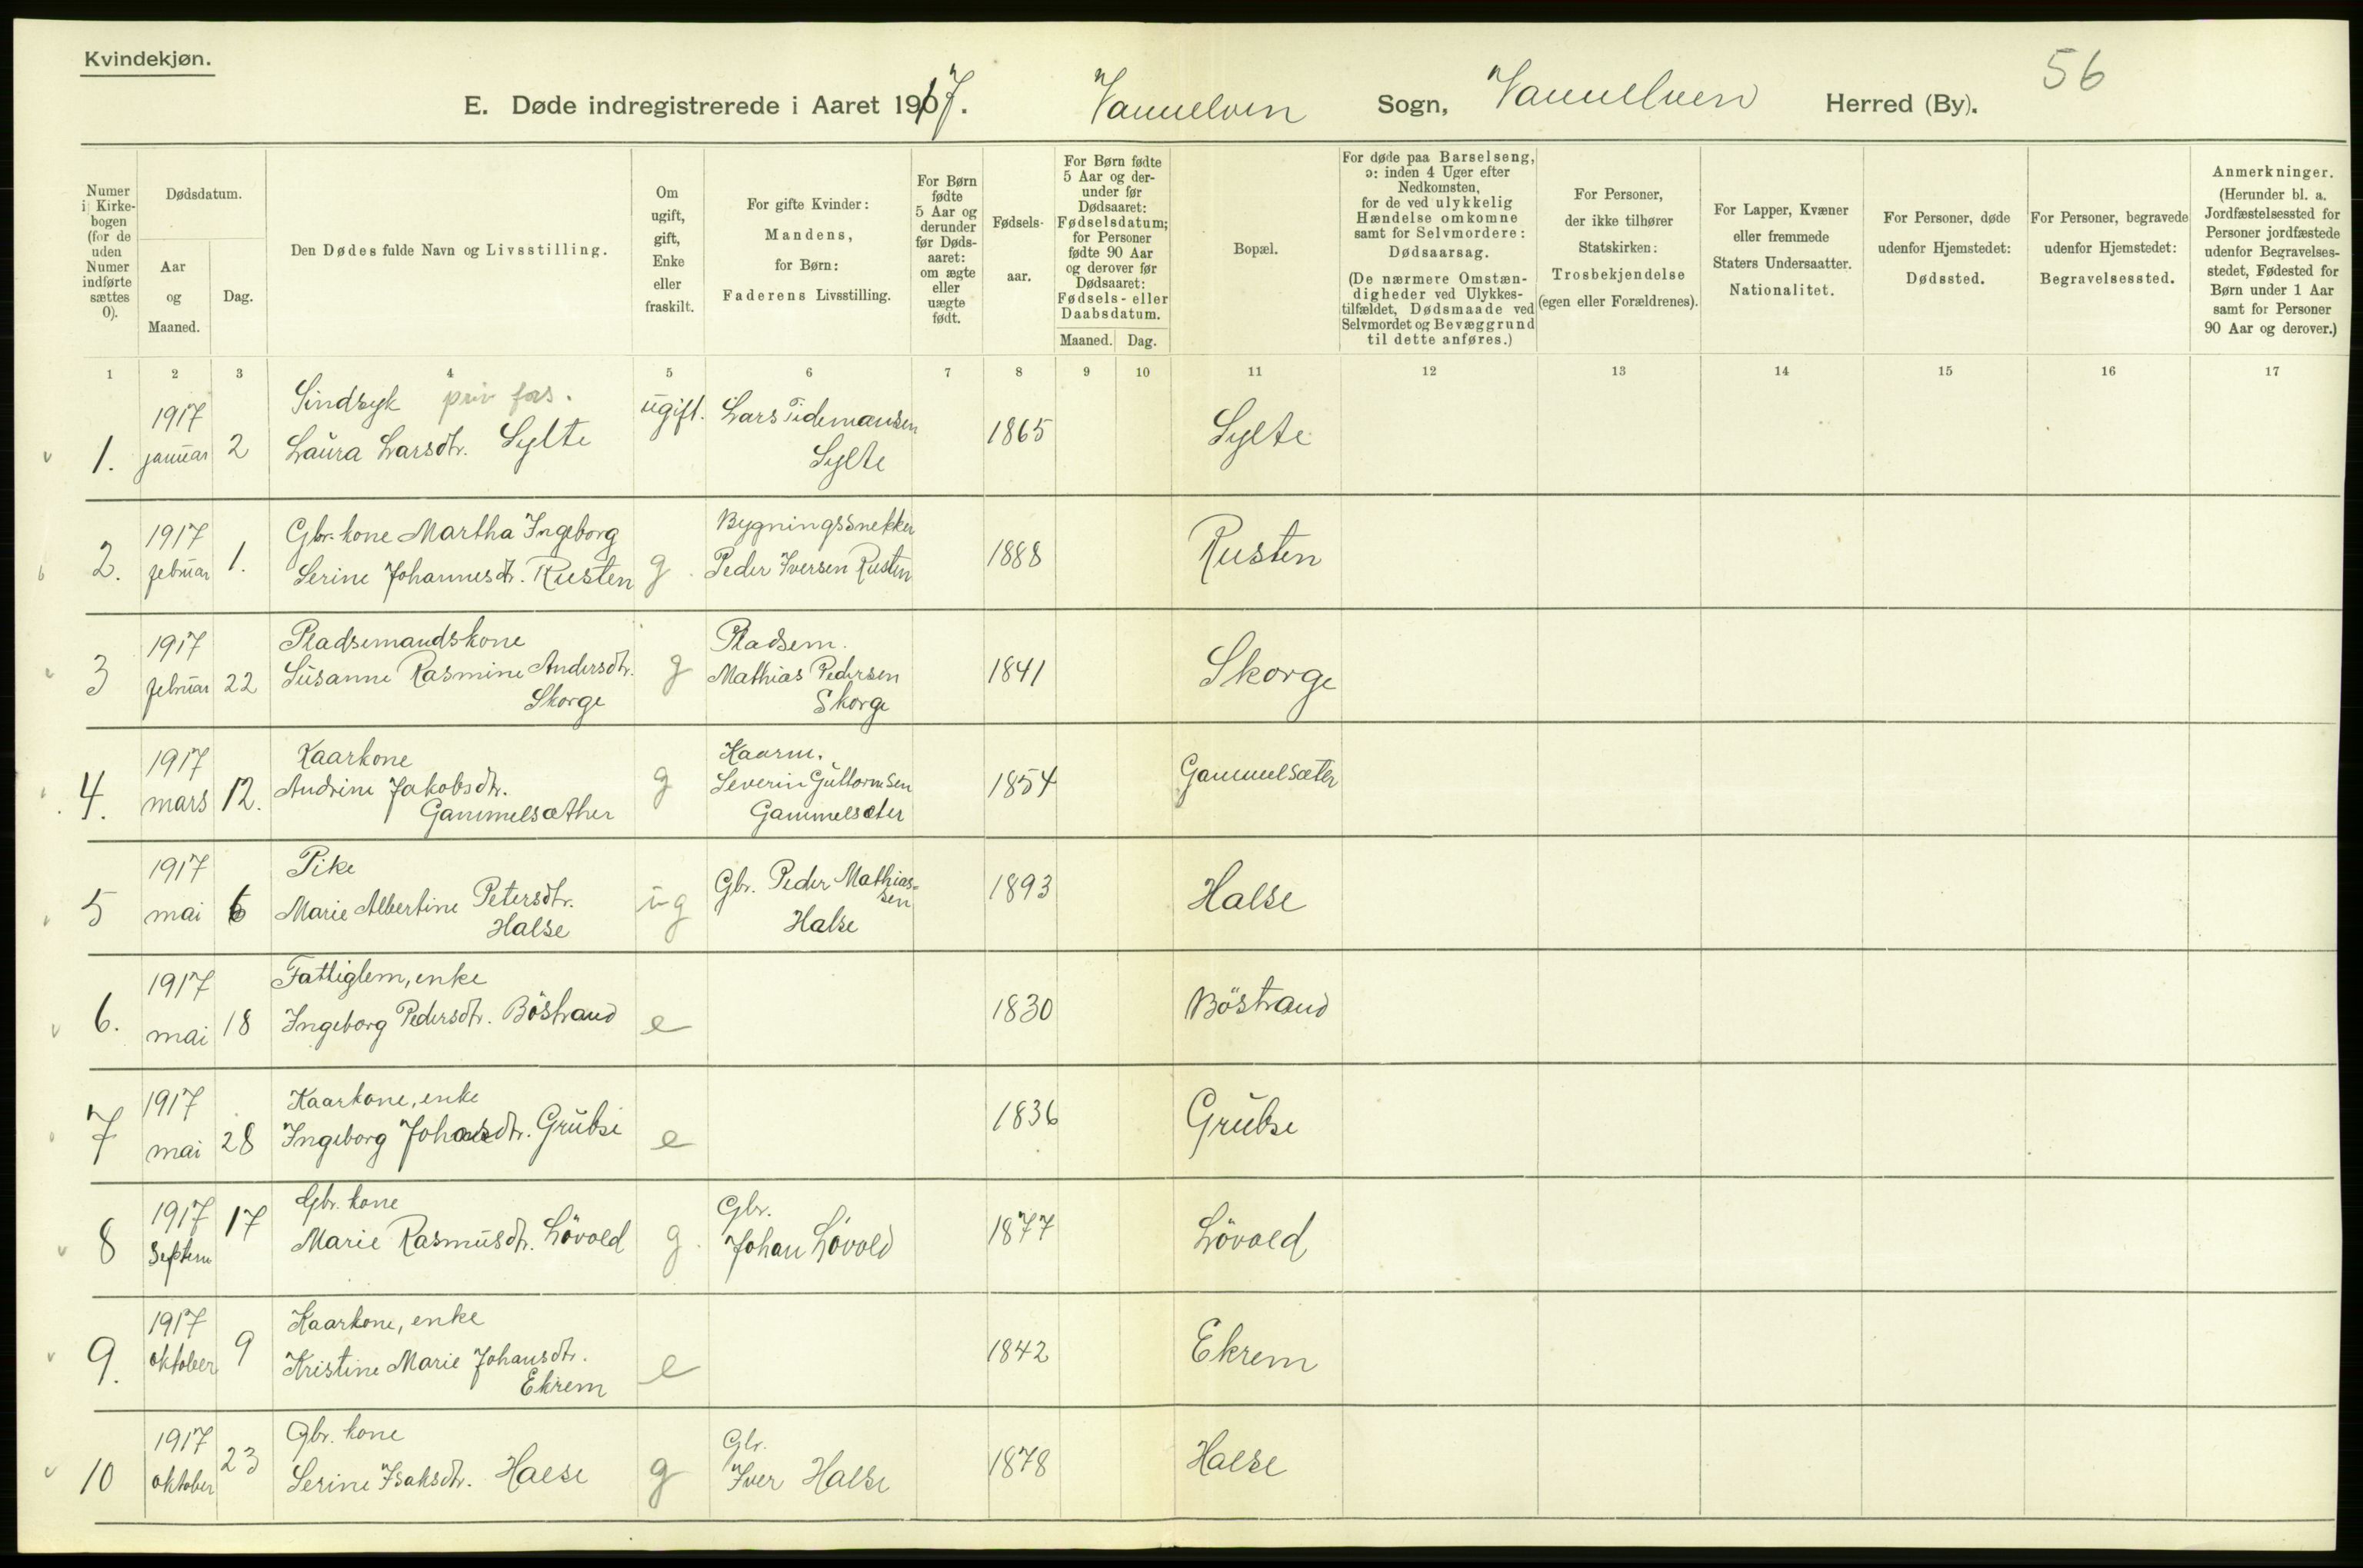 Kvindekjøn.
56
E. Døde indregistrerede i Aaret 1917. Vannelven Sogn, Vannelven Herred (By).
Numer i Kirkebogen (for de uden Numer indførte sættes 0).
Dødsdatum.
Aar og Maaned.
Dag.
Den Dødes fulde Navn og Livsstilling.
Om ugift, gift, Enke eller fraskilt.
For gifte Kvinder: Mandens, for Børn: Faderens Livsstilling.
For Børn fødte 5 Aar og derunder før Dødsaaret: om ægte eller uægte født.
Fødselsaar.
For Børn fødte 5 Aar og derunder før Dødsaaret: Fødselsdatum; for Personer fødte 90 Aar og derover før Dødsaaret: Fødsels- eller Daabsdatum.
Maaned. Dag.
Bopæl.
For døde paa Barselseng, ɔ: inden 4 Uger efter Nedkomsten, for de ved ulykkelig Hændelse omkomne samt for Selvmordere: Dødsaarsag.
(De nærmere Omstændigheder ved Ulykkestilfældet, Dødsmaade ved Selvmordet og Bevæggrund til dette anføres.)
For Personer, der ikke tilhører Statskirken: Trosbekjendelse (egen eller Forældrenes).
For Lapper, Kvæner eller fremmede Staters Undersaatter. Nationalitet.
For Personer, døde udenfor Hjemstedet: Dødssted.
For Personer, begravede udenfor Hjemstedet: Begravelsessted.
Anmerkninger.
(Herunder bl. a. Jordfæstelsessted for Personer jordfæstede udenfor Begravelsesstedet, Fødested for Børn under 1 Aar samt for Personer 90 Aar og derover.)
1 2 3 4 5 6 7 8 9 10 11 12 13 14 15 16 17
1. 1917 januar 2 Sindsyk priv fors.
Laura Larsdtr. Sylte ugift. Lars Tidemansen
Sylte 1865 Sylte
2. 1917 februar 1. Gbr. kone Martha Ingeborg
Serine Johannesdtr. Rusten g. Bygningssnekker
Peder Iversen Rusten 1888 Rusten
3 1917 februar 22 Pladsemandskone
Susanne Rasmine Andersdtr.
Skorge g Pladsem.
Mathias Pedersen
Skorge 1841 Skorge
4. 1917 mars 12. Kaarkone
Andrine Jakobsdtr.
Gammelsæther g Kaarm.
Severin Guttormsen
Gammelsæter 1854 Gammelsæter
5 1917 mai 6 Pike
Marie Albertine Petersdtr.
Halse ug Gbr. Peder Mathias-
sen
Halse 1893 Halse
6. 1917 mai 18 Fattiglem, enke
Ingeborg Pedersdtr. Böstrand e 1830 Böstrand
7 1917 mai 28 Kaarkone, enke
Ingeborg Johansdtr. Grubse e 1836 Grubse
8 1917 Septem 17 Gbr. kone
Marie Rasmusdtr. Lövold g. Gbr.
Johan Lövold 1877 Lövold
9. 1917 oktober 9 Kaarkone, enke
Kristine Marie Johansdtr.
Ekrem e 1842 Ekrem
10 1917 oktober 23 Gbr. kone
Serine Isaksdtr. Halse g Gbr.
Iver Halse 1878 Halse